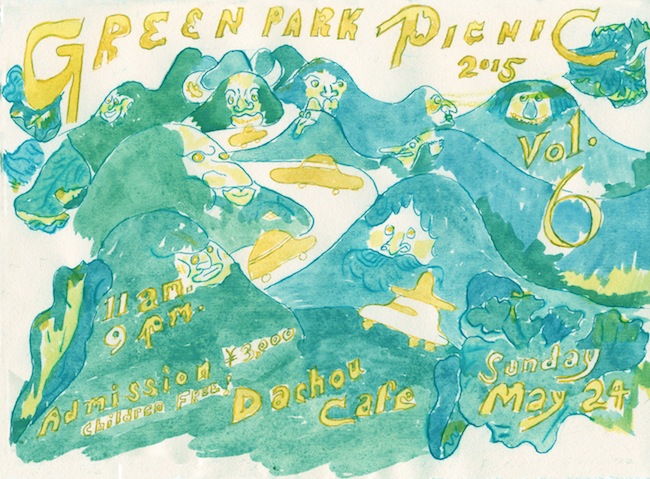 GREEN PARK PICNIC
2015
Vol.
6
11 am.
9 pm.
Admission ¥3,000
Children Free!
Dachou
Cafe
Sunday
May 24